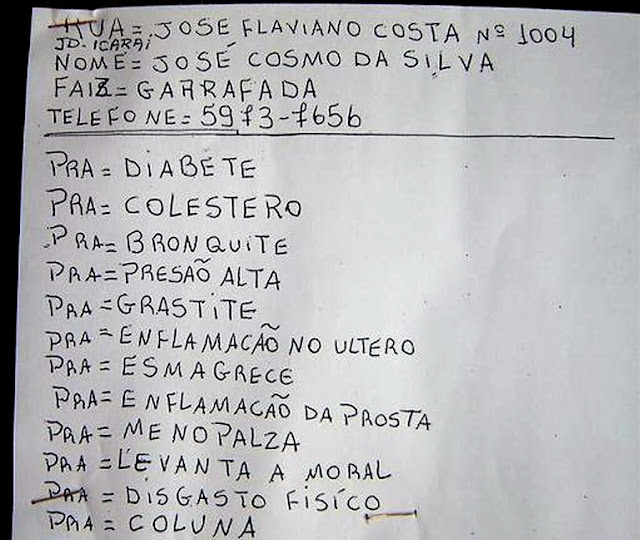 RUA = JOSE FLAVIANO COSTA Nº 1004
JD-ICARAI
NOME = JOSÉ COSMO DA SILVA
FAIZ = GARRAFADA
TELEFONE = 5973-7656
PRA = DIABETE
PRA = COLESTERO
PRA = BRONQUITE
PRA = PRESAÕ ALTA
PRA = GRASTITE
PRA = ENFLAMACÃO NO ULTERO
PRA = ESMAGRECE
PRA = ENFLAMACÃO DA PROSTA
PRA = MENOPALZA
PRA = LEVANTA A MORAL
PRA = DISGASTO FISÍCO
PRA = COLUNA